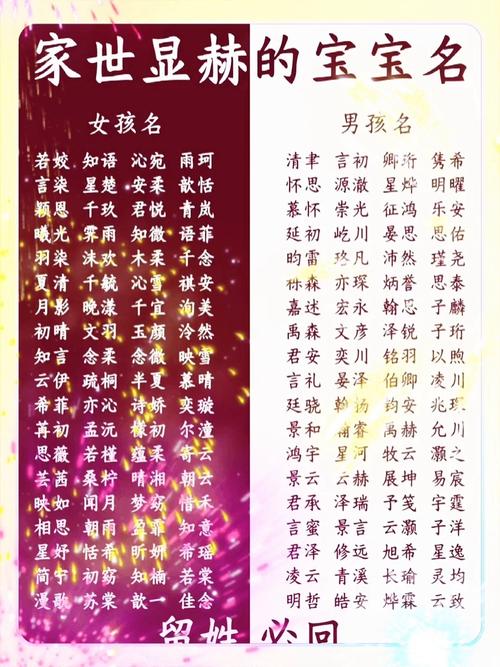 家世显赫的宝宝名
女孩名 男孩名
若姣 知语 沁宛 雨珂 清聿 言初 卿珩 隽希
言柒 星楚 安柔 歆恬 怀思 源澈 星烨 明曜
颖恩 千玖 君悦 青岚 慕怀 崇光 征鸿 乐安
曦光 霁雨 知微 语菲 延初 屹川 晏思 思佑
羽柒 沐欢 木柔 千念 昀雷 珞凡 沛然 瑾尧
夏清 文毓 沁雪 祺安 栎森 亦琛 炳誉 思泰
月影 千漾 千宜 洵美 嘉述 宏永 翰恩 子麟
初晴 文羽 玉颜 泠然 禹森 文彦 泽锐 子珩
知言 念柔 念微 映雪 君安 奕川 铭羽 以煦
云伊 琉桐 半夏 慕晴 言礼 晏泽 伯卿 凌川
希菲 亦沁 诗娇 奕璇 廷骁 翰扬 钧安 兆琪
苒初 孟沅 檬初 尔潼 景和 瀚睿 禹赫 允川
思薇 若槿 蕴柔 寄云 鸿宇 星河 牧云 灏之
芸茜 桑柠 晴湘 朝云 景云 云赫 展坤 易宸
映如 闻月 梦窈 惜禾 君承 泽瑞 予笺 宇霆
相思 朝雨 盈菲 知意 言蜜 景言 云灏 子洋
星好 若希 昕妍 希瑶 君泽 修远 旭希 星逸
简宁 初窈 知楠 若棠 凌云 青溪 长瑜 灵均
漫歌 苏棠 歆一 佳念 明哲 皓安 烨霖 云致
留姓 必回